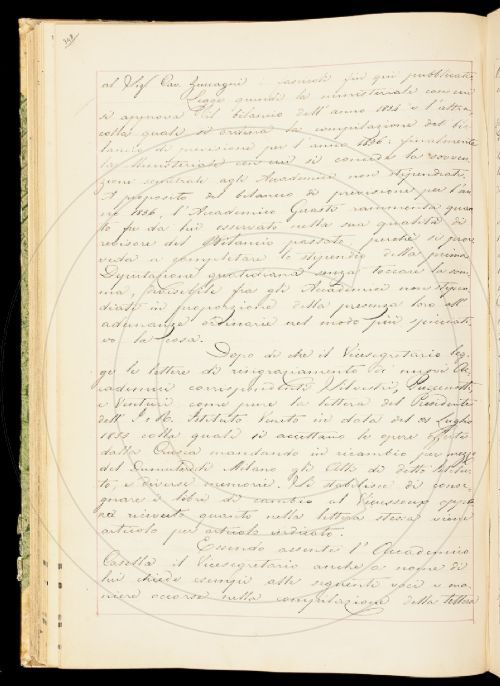 348
al Sig Cav. Zuccagni i manuali fin qui pubblicati
Legge quindi la ministeriale con cui
si approva il bilancio dell'anno 1854 e l'altra,
colla quale si ordina la compilazione del bi-
lancio di previsione per l'anno 1856: finalmente
la Ministeriale con cui si concede la sovven-
zioni semestrale agli Accademici non stipendiati.
A proposito del bilancio di previsione per l'an-
no 1856, l'Accademico Guasti rammenta quan-
to fu da lui osservato nella sua qualità di
revisore del Bilancio passato, perchè si prov-
veda a completare lo stipendio della prima
Deputazione quotidiana senza toccare la som-
ma, divisibile fra gli Accademici non stipen-
diati in proporzione della presenza loro all'
adunanze ordinarie nel modo più speculati-
vo la cosa.
Dopo di che il Vicesegretario leg-
ge le lettere di ringraziamento di nuovi Ac-
cademici corrispondenti Silvestri, Puccinotti
e Venturi come pure la lettera del Presidente
dell' I. e R. Istituto Veneto in data del 31 Luglio
1855 colla quale si accettano le opere offerte
dalla Crusca mandando in ricambio per mezzo
del Dumolard di Milano gli Atti di detto Istitu-
to, e diverse memorie. Si stabilisce di conse-
gnare i libri di cambio al Vieusseux
ricevere quanto nella lettera stessa viene
articolo per articolo indicato.
Essendo assente l'Accademico
Casella il Vicesegretario anche a nome di
lui chiede esempj alle seguenti voci e ma-
niere occorse nella compilazione della lettera